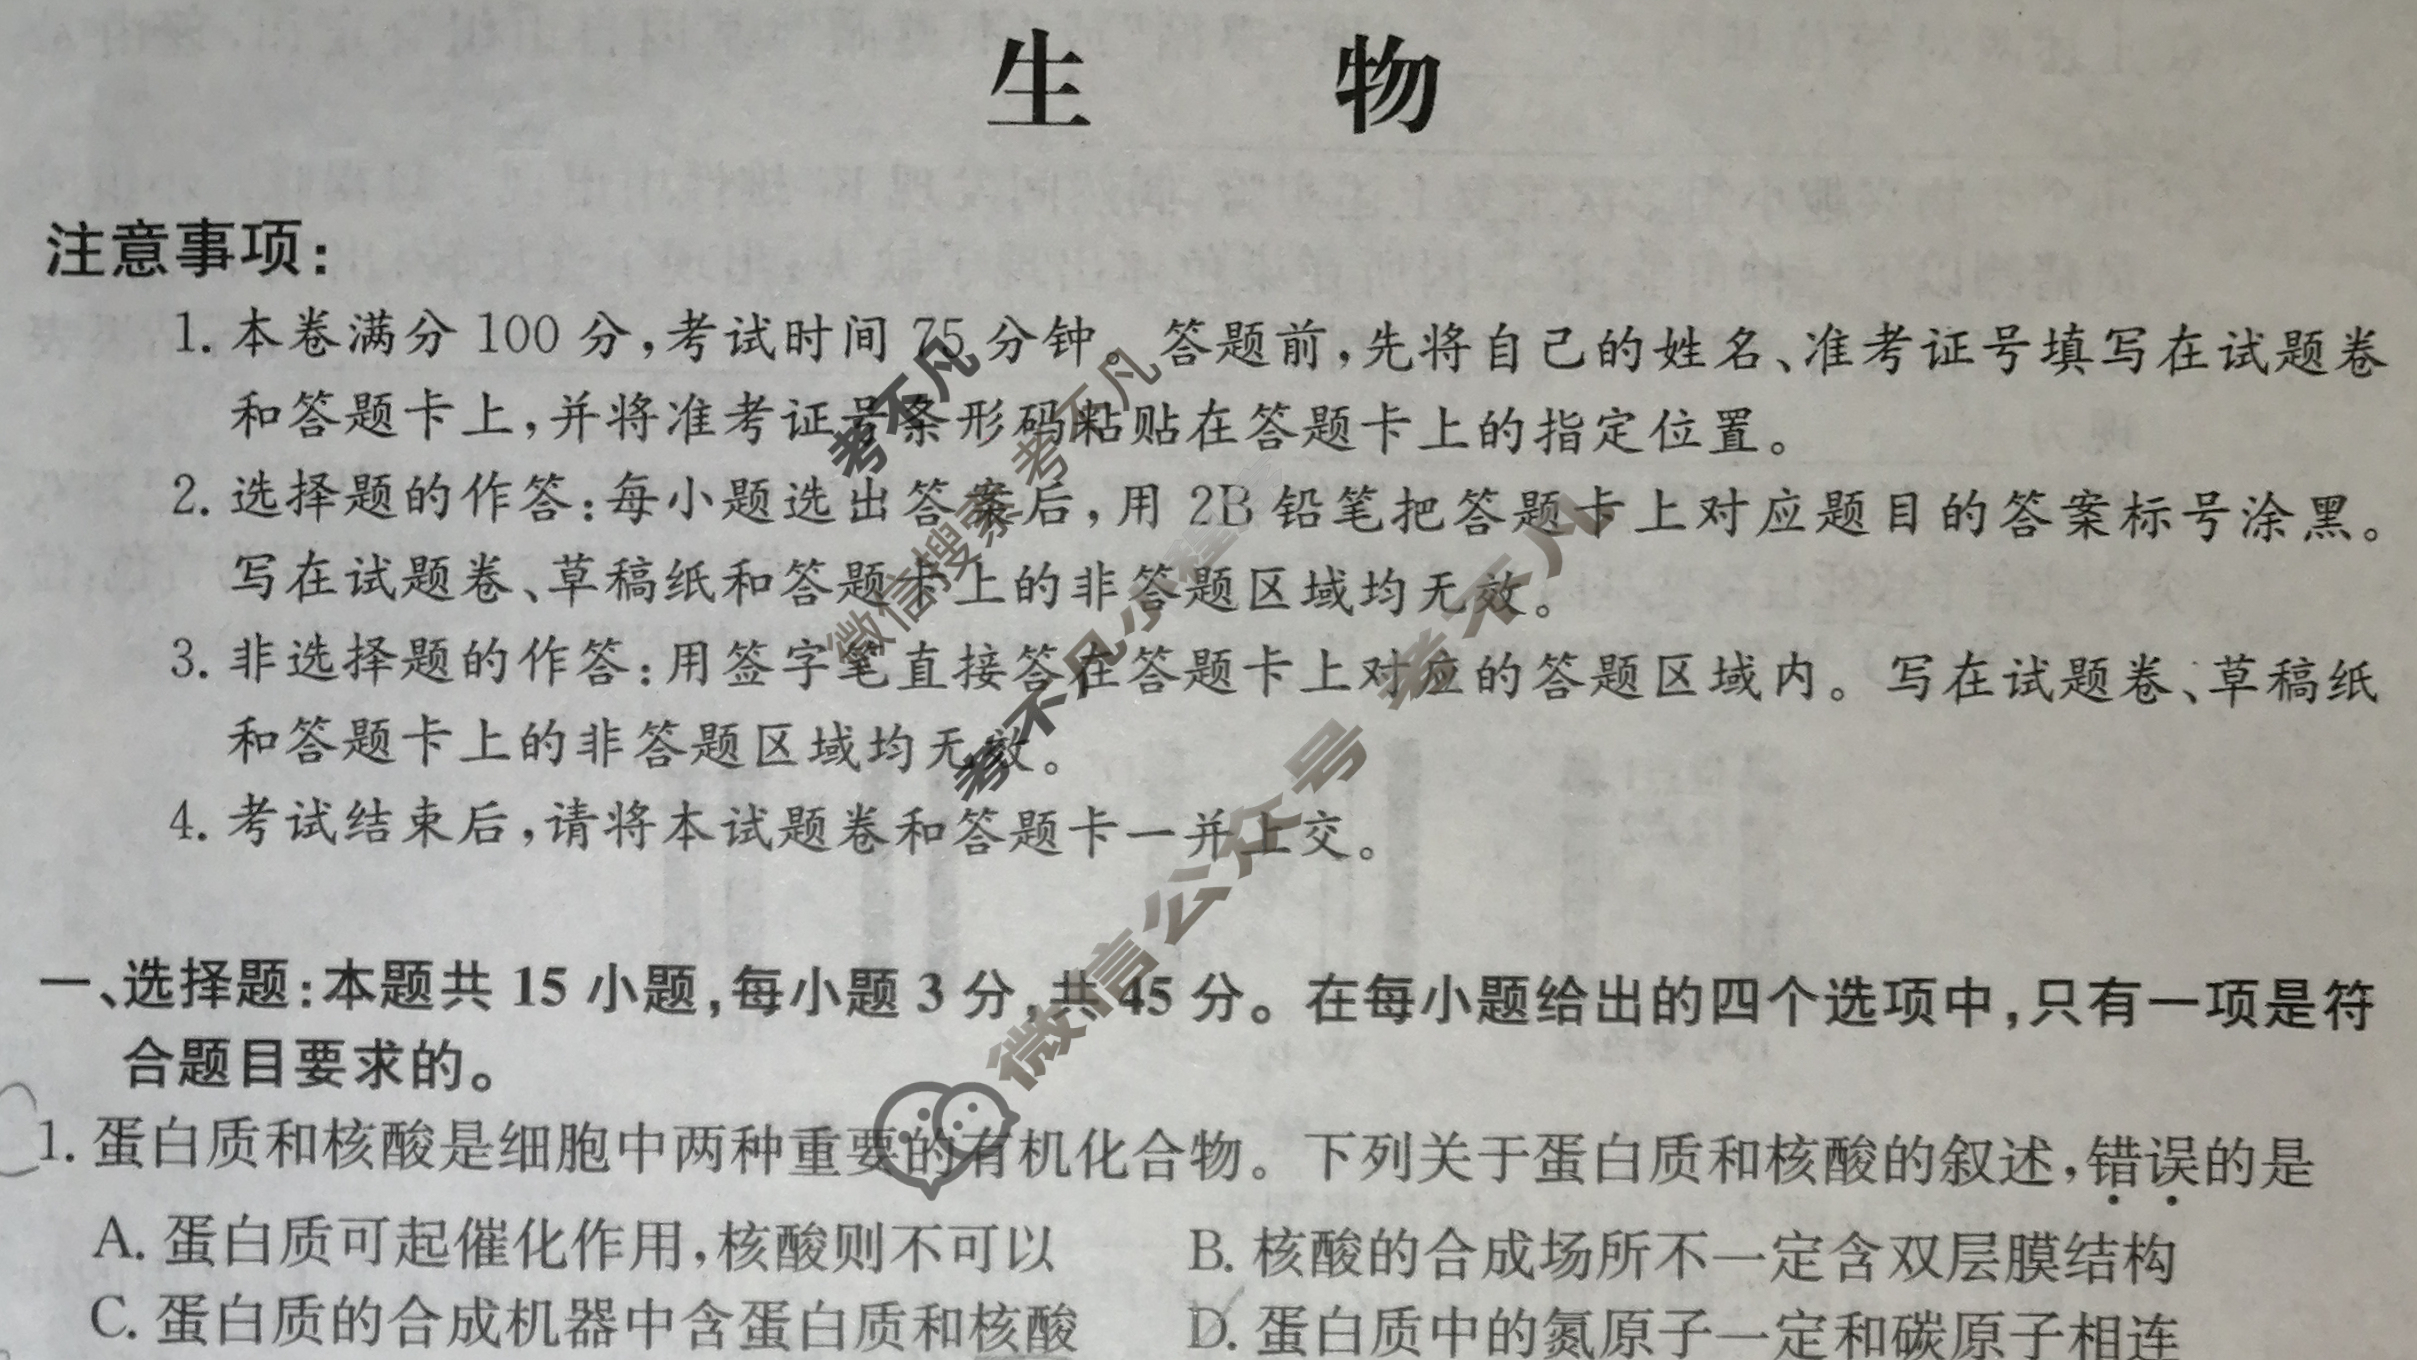 生 物
注意事项：
1. 本卷满分 100 分，考试时间 75 分钟。答题前，先将自己的姓名、准考证号填写在试题卷
和答题卡上，并将准考证号条形码粘贴在答题卡上的指定位置。
2. 选择题的作答：每小题选出答案后，用 2B 铅笔把答题卡上对应题目的答案标号涂黑。
写在试题卷、草稿纸和答题卡上的非答题区域均无效。
3. 非选择题的作答：用签字笔直接答在答题卡上对应的答题区域内。写在试题卷、草稿纸
和答题卡上的非答题区域均无效。
4. 考试结束后，请将本试题卷和答题卡一并上交。
考不凡
微信搜索 考不凡
考不凡小程序
微信公众号 考不凡
一、选择题：本题共 15 小题，每小题 3 分，共 45 分。在每小题给出的四个选项中，只有一项是符
合题目要求的。
1. 蛋白质和核酸是细胞中两种重要的有机化合物。下列关于蛋白质和核酸的叙述，错误的是
A. 蛋白质可起催化作用，核酸则不可以 B. 核酸的合成场所不一定含双层膜结构
C. 蛋白质的合成机器中含蛋白质和核酸 D. 蛋白质中的氮原子一定和碳原子相连